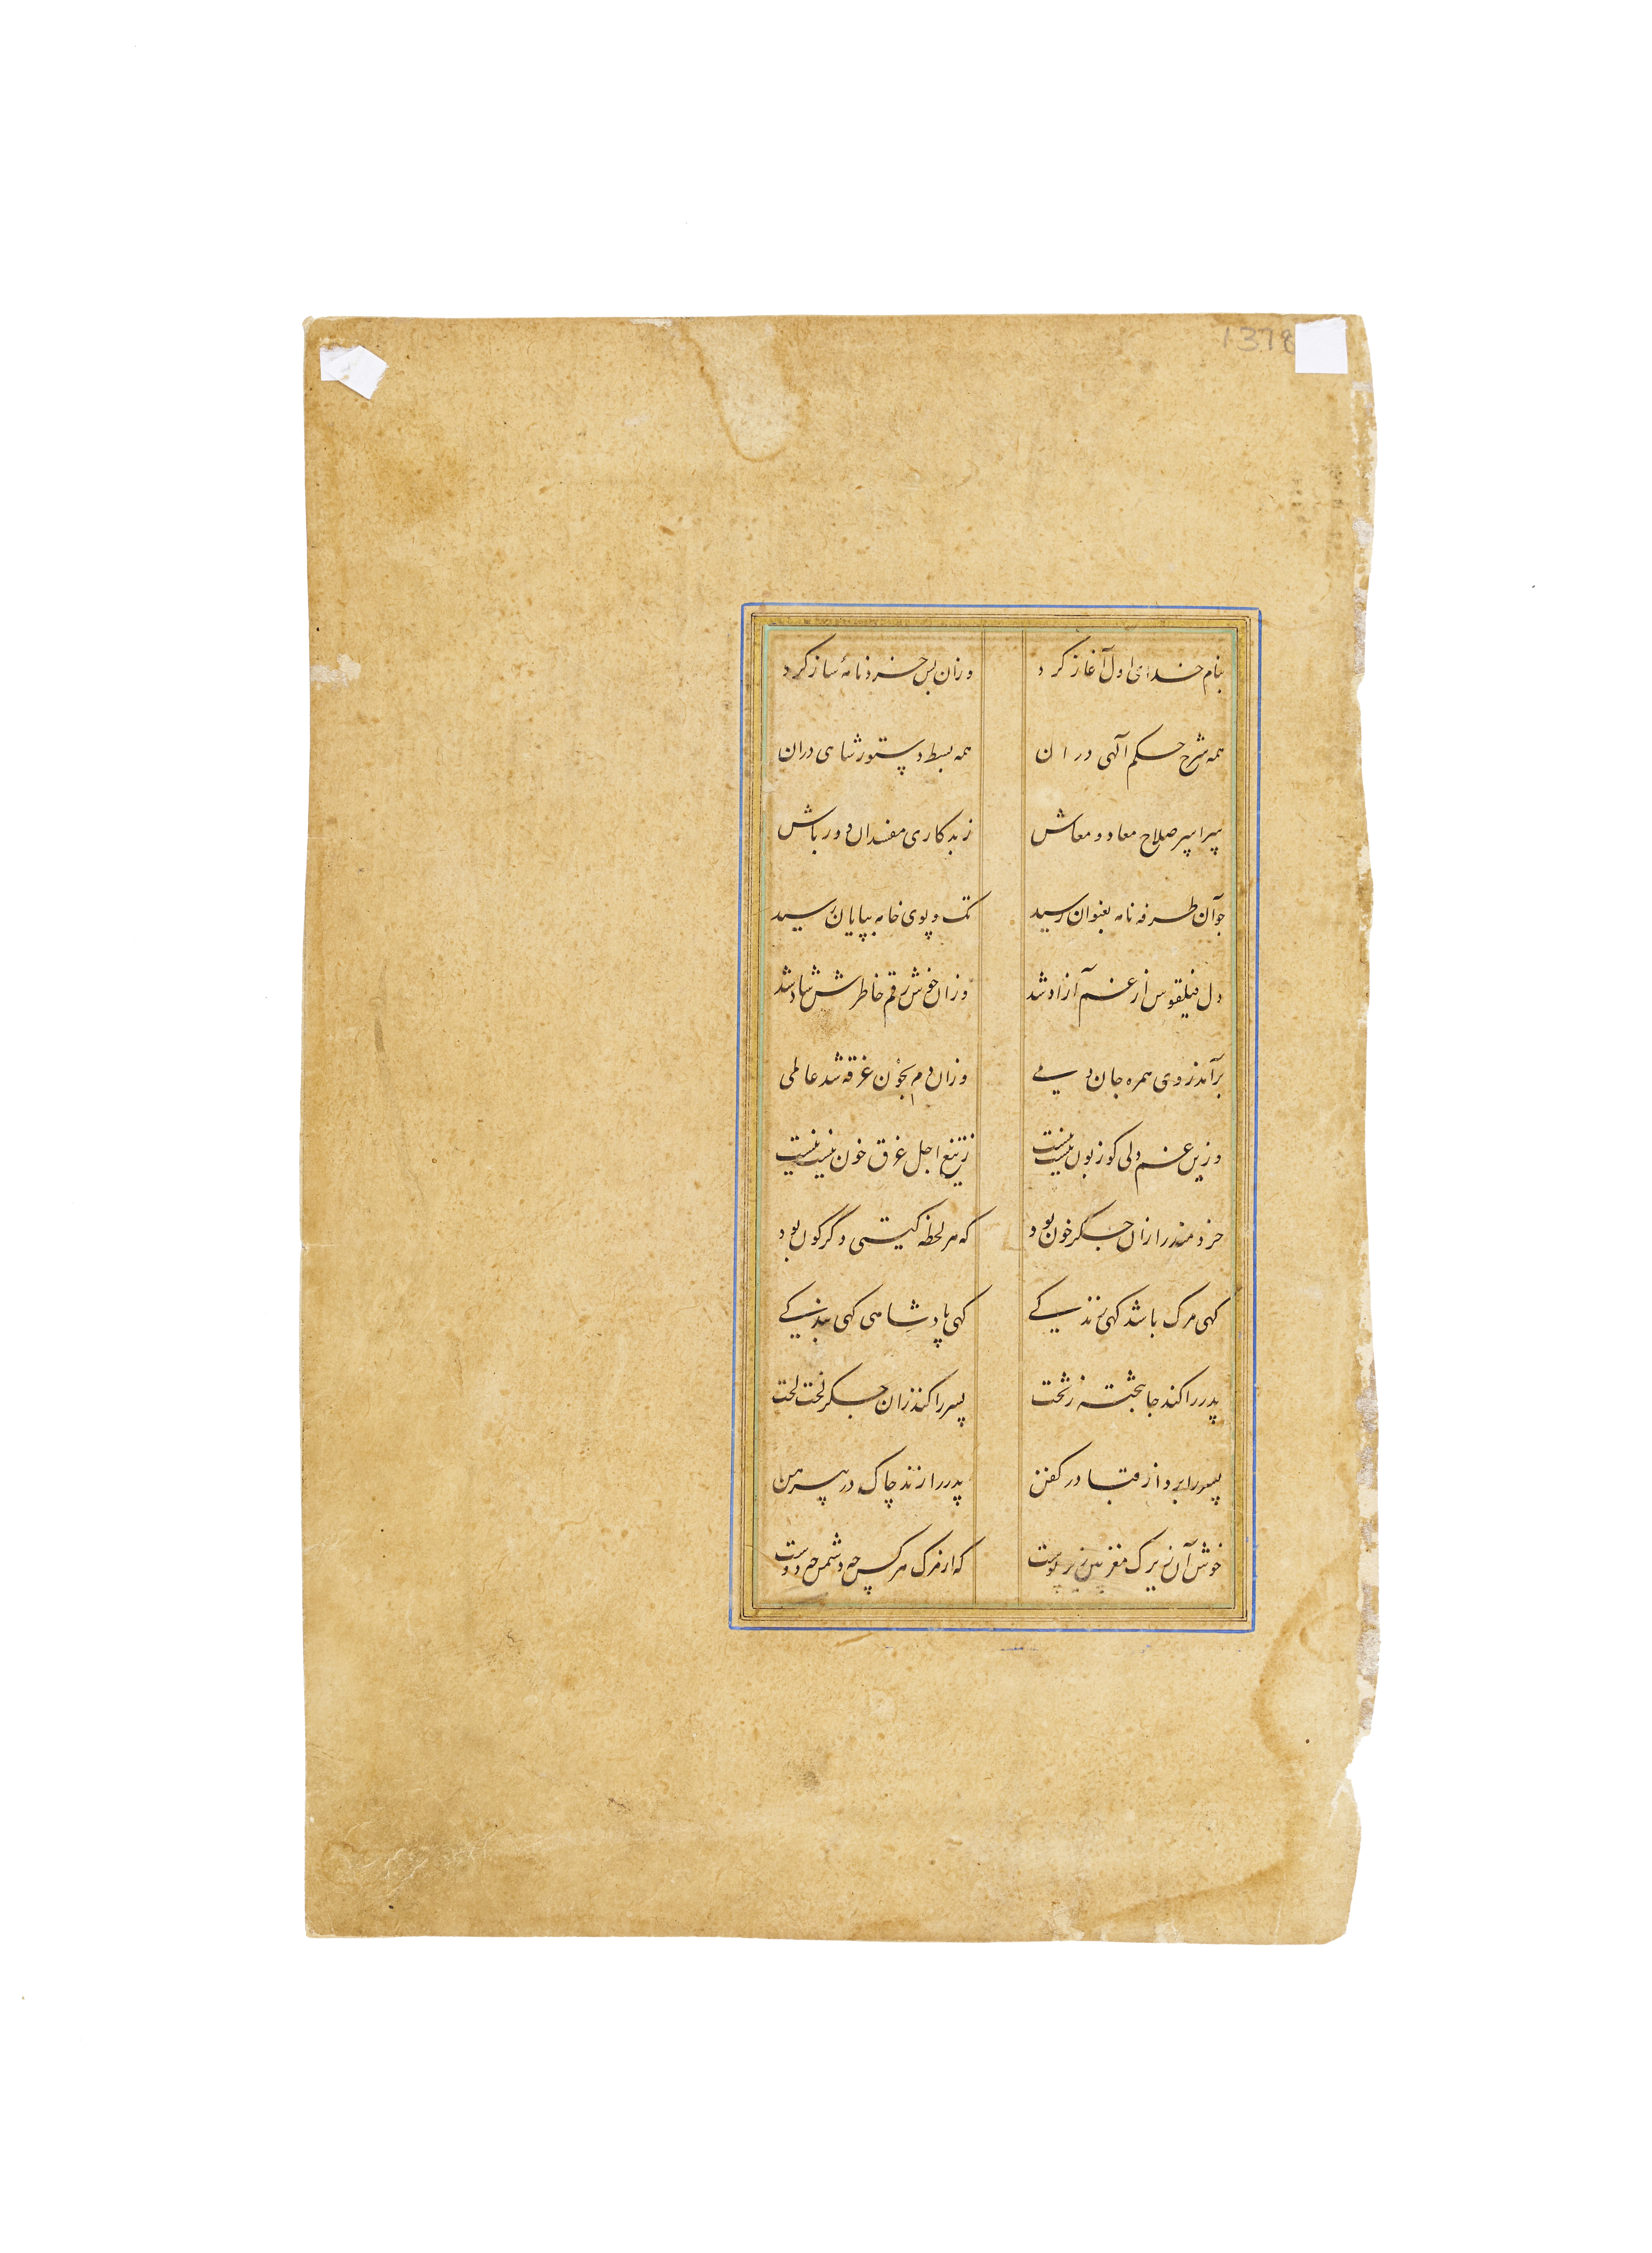 1378
بنام خدای اول آغاز کرد وزان پس خردنامهٔ ساز کرد
همه شرح حکم آلهی دران همه بسط دستور شاهی دران
سراسر صلاح معاد و معاش ز بدکاری مفسدان دور باش
چو آن طرفه نامه بعنوان رسید تک و پوی خامه بپایان رسید
دل فیلقوس از غم آزاد شد وزان خوش رقم خاطرش شاد شد
برآمد ز وی همره جان دمی وزان دم بخون غرقه شد عالمی
وزین غم دلی کو زبون نیست نیست ز تیغ اجل غرق خون نیست نیست
خردمند را زان جگر خون بود که هر لحظه گیتی دگرگون بود
کهی مرک باشد کهی زندکی کهی پادشاهی کهی بندکی
پدر را کند جا بتخته ز تخت پسر را کند زان جکر لخت لخت
پسر را برد از قبا در کفن پدر را زند چاک در پیرهن
خوش آن زیرک مغز بین زیر پوست که از مرک هر کس چه دشمن چه دوست